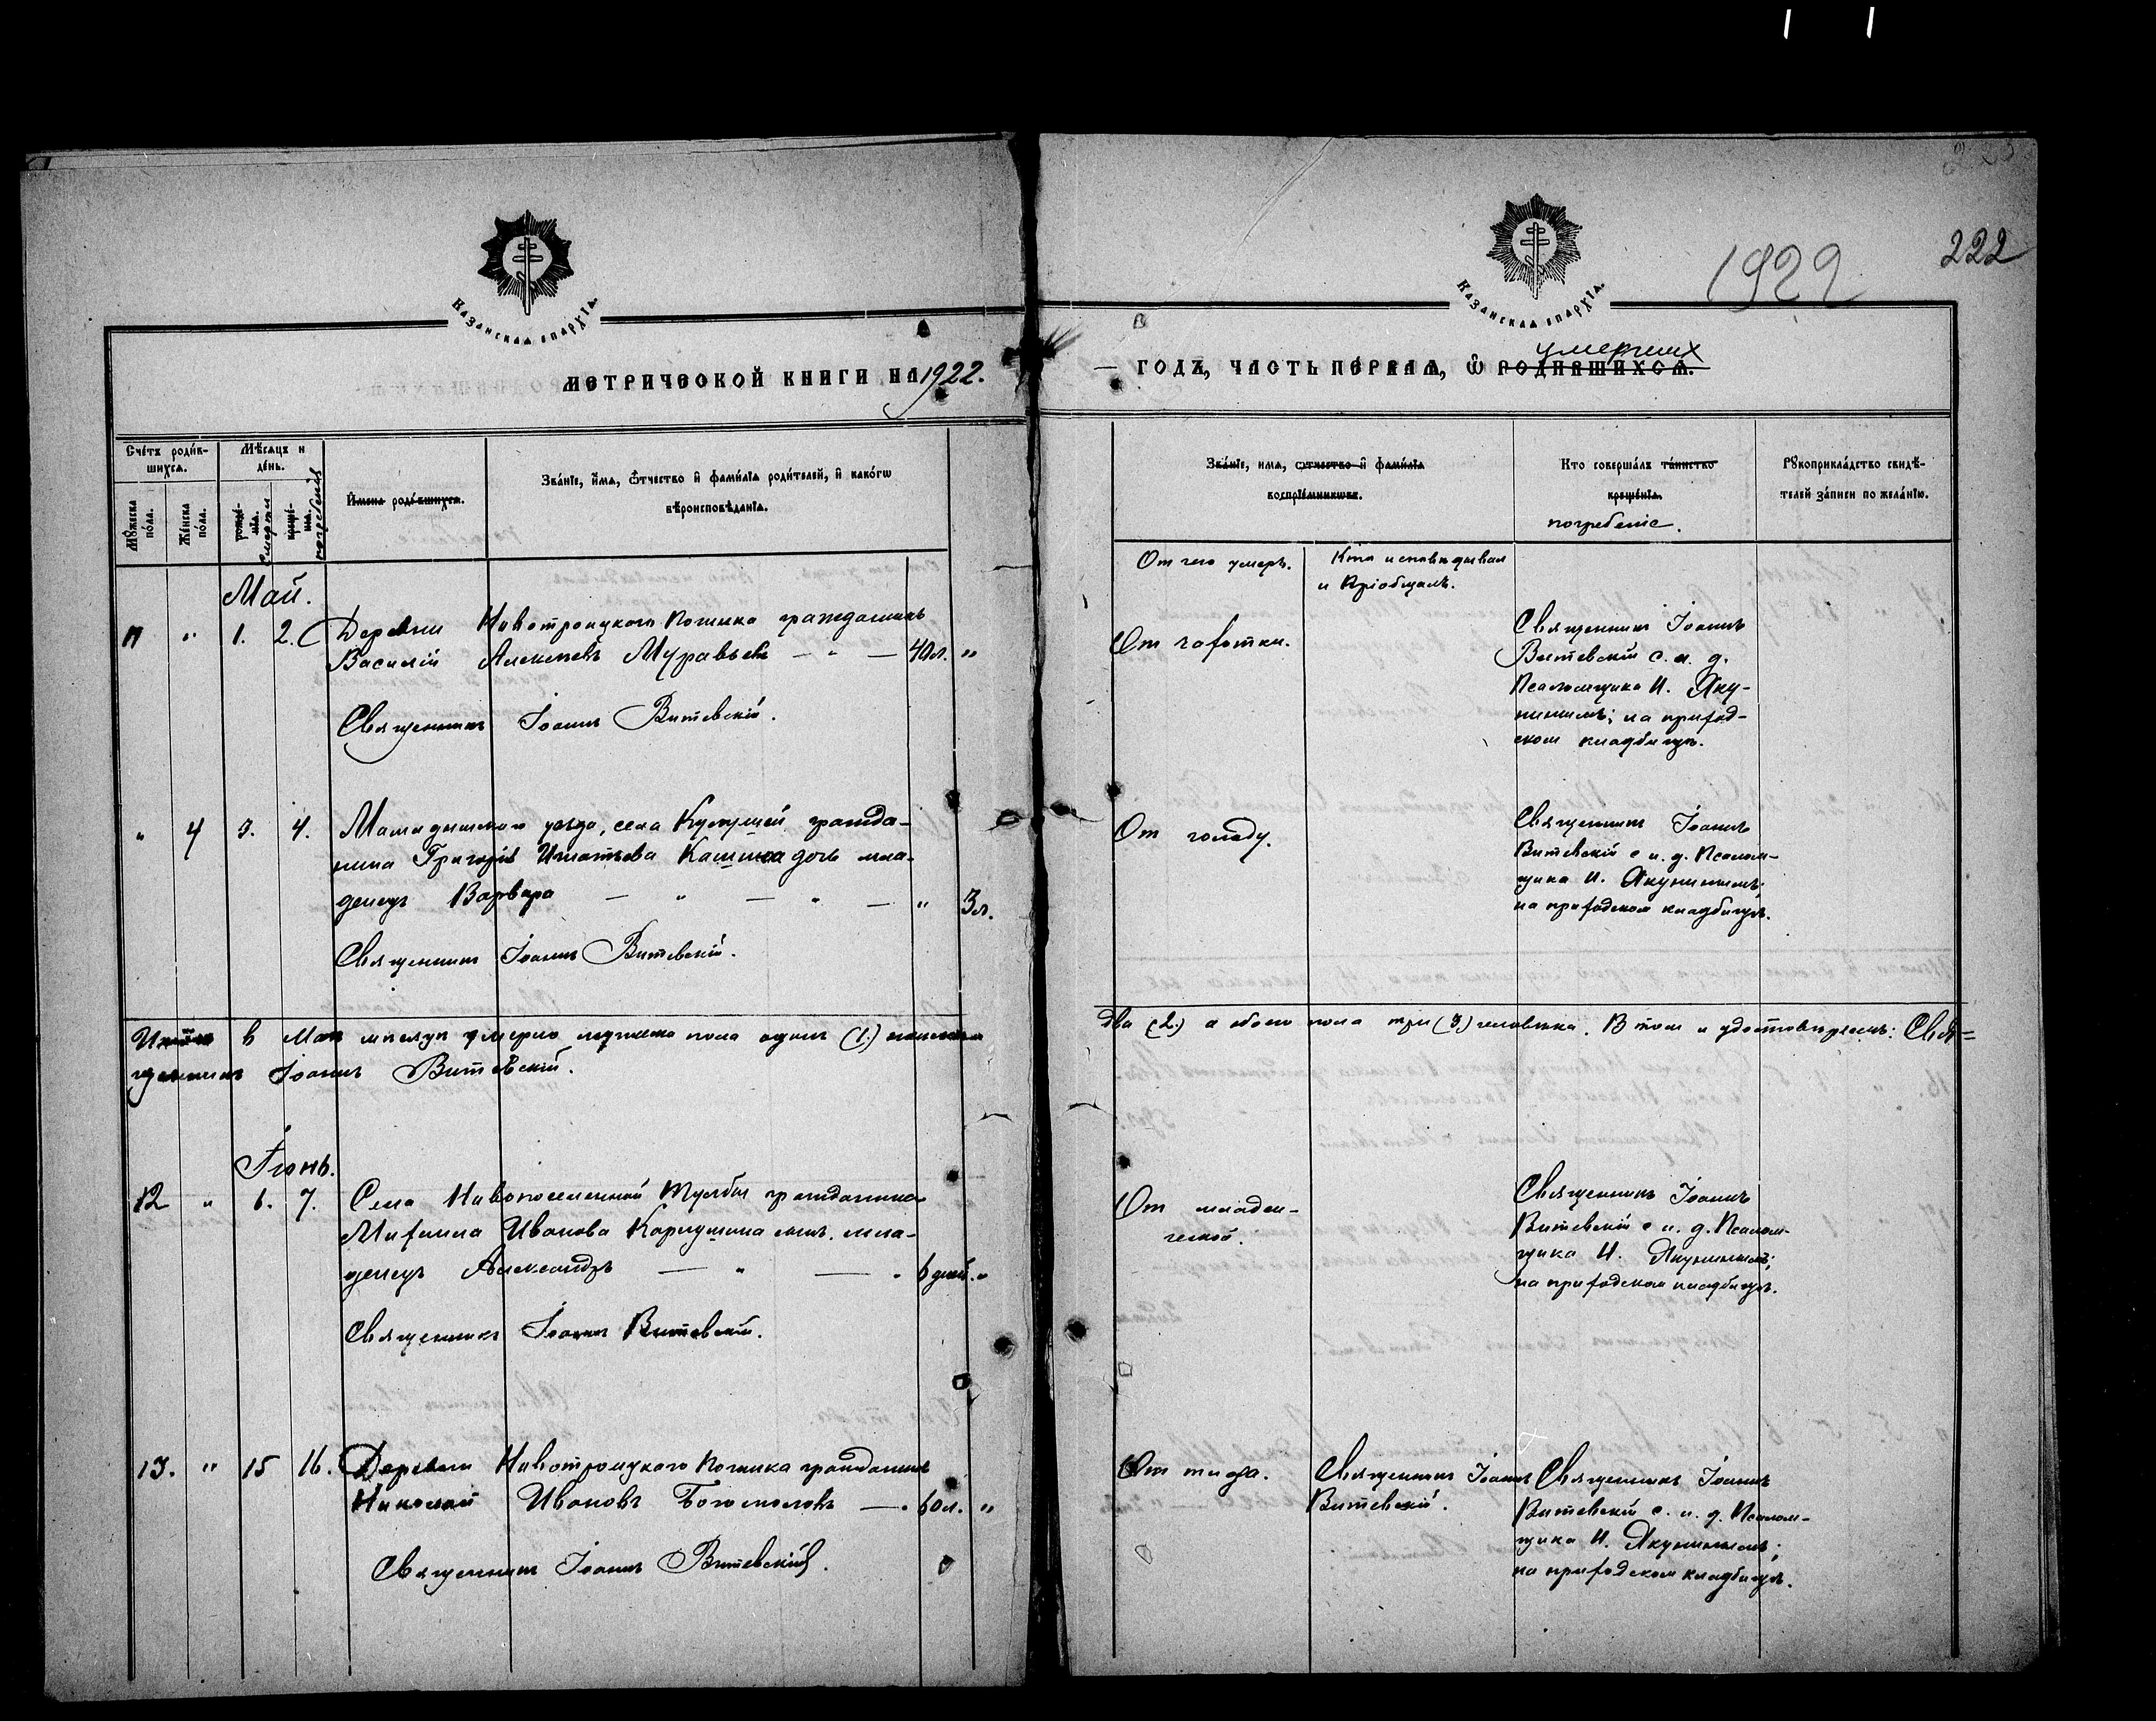 222
1922
Казанская епархїа.
Казанская епархїа.
МЕТРИЧЕСКОЙ КНИГИ НА 1922.
— ГОДЪ, ЧАСТЬ ПЕРВАЯ, Ѿ РОДИВШИХСЯ.
умерших
Счетъ родив-
шихся.
Мѣсяцъ и
день.
Мужеска
пола.
Женска
пола.
рожде-
нія.
смерти
креще-
нія.
погребенія
Имена родившихся.
Званіе, имя, отчество и фамилія родителей, и какогω
вѣроисповѣданія.
Званіе, имя, отчество и фамилія
воспріемниковъ.
Кто совершалъ таинство
крещенія.
погребеніе.
Рукоприкладство свидѣ-
телей записи по желанію.
От чего умеръ.
Кто исповѣдывал
и пріобщалъ.
Май.
11 " 1. 2. Деревни Новотроицкаго Починка гражданинъ
Василій Алексѣевъ Муравьевъ — " — 40 л. "
Священникъ Іоаннъ Витевскій.
От чахотки.
Священникъ Іоаннъ
Витевскій с и. д.
Псаломщика И. Яку-
нинымъ; на приход-
ском кладбищѣ.
" 4 3. 4. Мамадышскаго уѣзда, села гражда-
нина Григорія Игнатьева дочь мла-
денецъ Варвара — " — " — " 3 л.
Священникъ Іоаннъ Витевскій.
От голоду.
Священникъ Іоаннъ
Витевскій с и. д. Псалом-
щика И. Якунинымъ;
на приходском кладбищѣ.
Итого в Маѣ мѣсяцѣ умерло мужеска пола один (1.) женска
два (2.) а обоего пола три (3.) человѣка. В том и удостовѣряемъ: Свя=
щенникъ Іоаннъ Витевскій.
Іюнь.
12 " 6. 7. Села гражданина
Иванова сынъ мла-
денецъ Александръ — " — " 6 дней. "
Священникъ Іоаннъ Витевскій.
От младен-
ческой.
Священникъ Іоаннъ
Витевскій с и. д. Псалом-
щика И. Якунинымъ;
на приходском кладбищѣ.
13. " 15 16. Деревни Новотроицкаго Починка гражданинъ
Николай Ивановъ Богомоловъ — " 60 л. "
Священникъ Іоаннъ Витевскій.
От тифа.
Священникъ Іоаннъ
Витевскій.
Священникъ Іоаннъ
Витевскій с. и. д. Псалом-
щика И. Якунинымъ;
на приходском кладбищѣ.